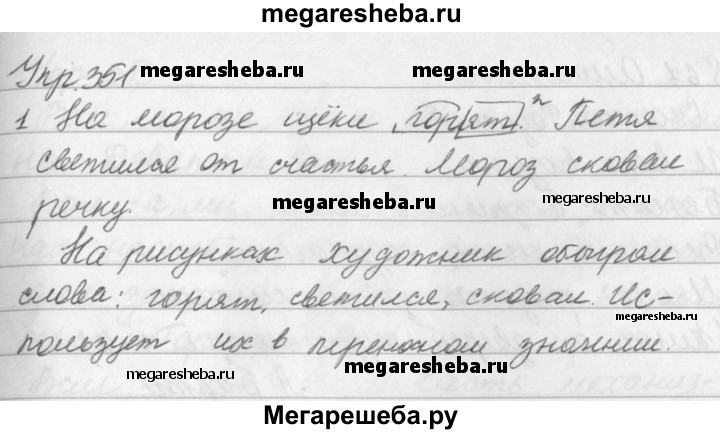 megaresheba.ru
Упр. 351
megaresheba.ru
megaresheba.ru
1 На морозе щёки горят.² Петя
светился от счастья. Мороз сковал
megaresheba.ru
речку.
megaresheba.ru
На рисунках художник обыграл
слова: горят, светился, сковал. Ис-
megaresheba.ru
пользует их в переносном значении.
megaresheba.ru
megaresheba.ru
Мегарешеба.ру